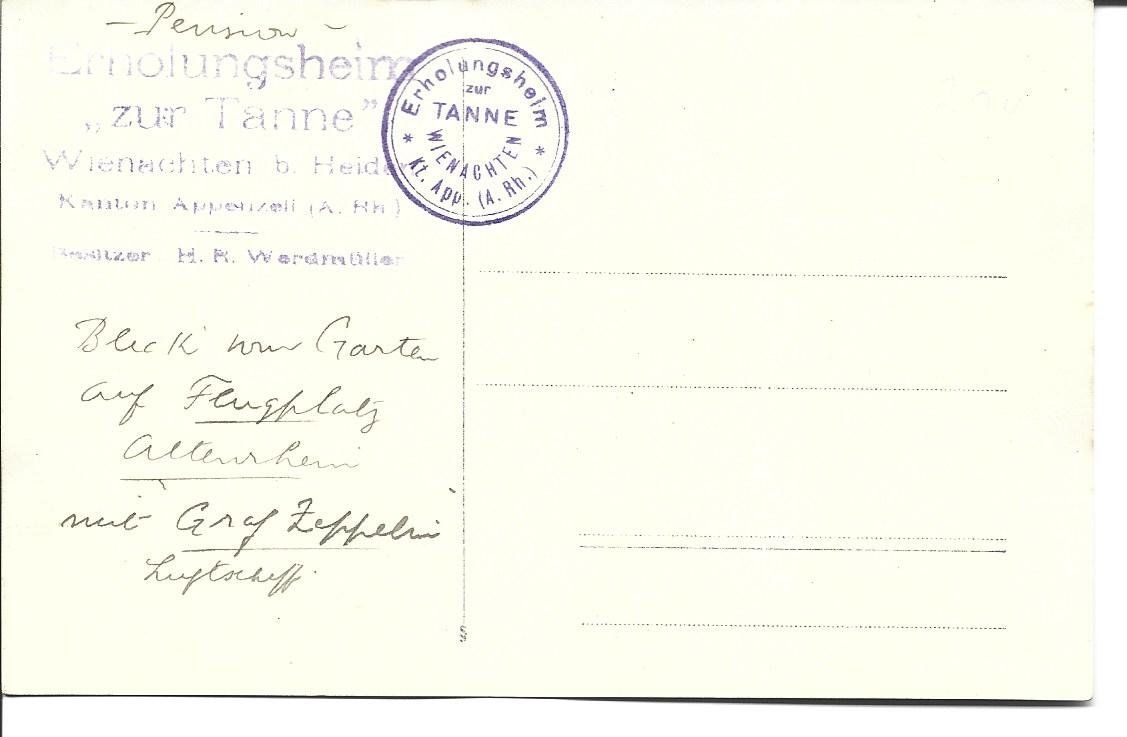 – Pension –
Erholungsheim
„zur Tanne”
Wienachten b. Heiden
Kanton Appenzell (A. Rh.)
Besitzer H. R. Werdmüller
Erholungsheim
zur
TANNE
WIENACHTEN
* Kt. App. (A. Rh.) *
Blick vom Garten
auf Flugplatz
Altenrhein
mit Graf Zeppelin
Luftschiff.